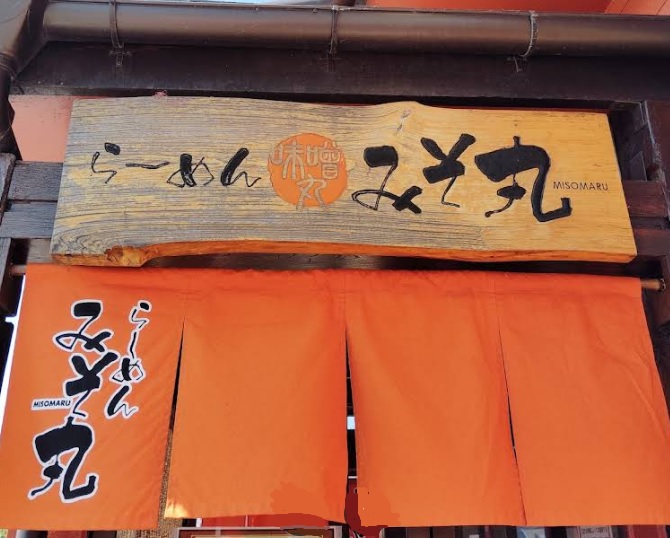 らーめん 味噌丸 みそ丸 MISOMARU
らーめん
みそ丸
MISOMARU